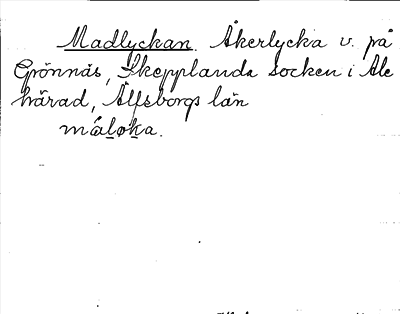 Madlyckan. Åkerlycka v. på
Grönnäs, Skepplanda socken i Ale
härad, Älfsborgs län
máloka.